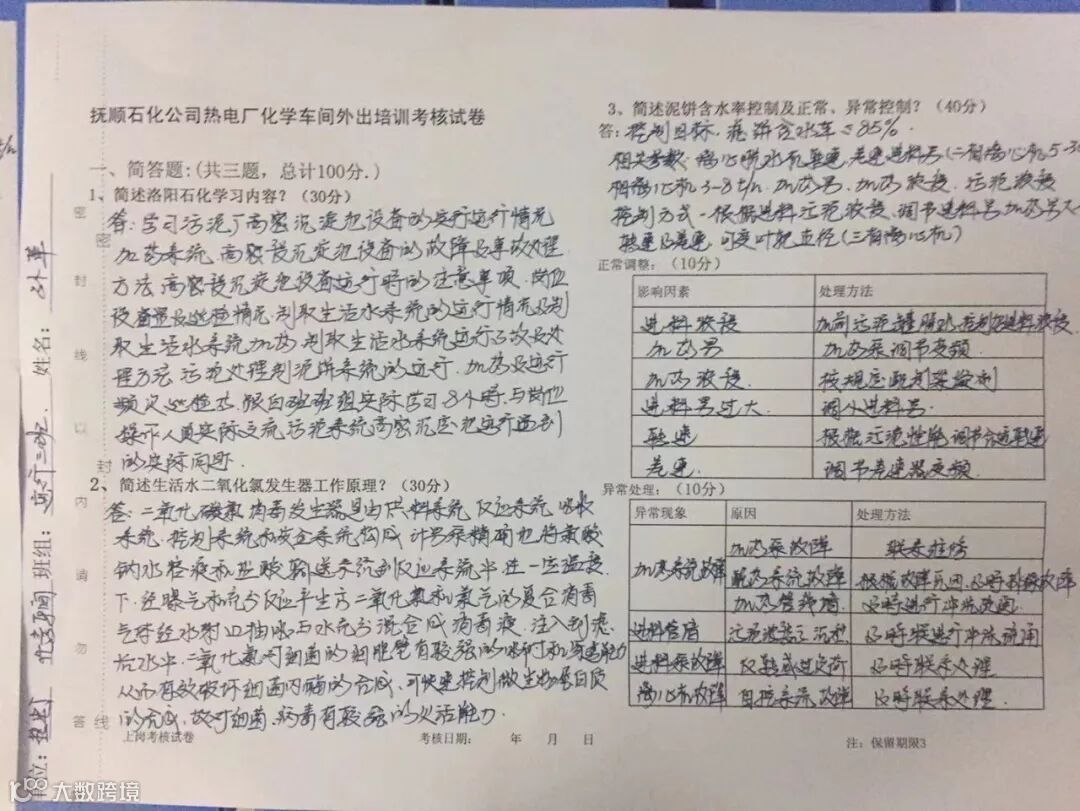 抚顺石化公司热电厂化学车间外出培训考核试卷
一、简答题:(共三题,总计100分.)
1、简述洛阳石化学习内容?(30分)
答:学习污泥厂高密沉淀池设备的实际运行情况
加药系统,高密度沉淀池设备的故障及事故处理
方法,高密度沉淀池设备运行时的注意事项,岗位
设备巡检情况,制取生活水系统的运行情况及制
取生活水系统加药,制取生活水系统运行事故及处
理方法,污泥处理制泥饼系统的运行,加药及运行
频次巡检点,跟白班班组实际学习8小时,与岗位
操作人员实际交流,污泥系统高密沉淀池运行遇到
的实际问题.
2、简述生活水二氧化氯发生器工作原理?(30分)
答:二氧化氯消毒发生器是由供料系统 反应系统 吸收
系统.控制系统和安全系统构成 计量泵精确地将氯酸
钠水溶液和盐酸输送系统到反应系统中进一定温度
下,经曝气和充分反应产生二氧化氯和氯气的复合消毒
气体经水射口抽吸与水充分混合成消毒液.注入到
后水中.二氧化氯对细菌的细胞壁有较强的吸附和穿透能力
从而有效破坏细菌内酶的合成,可快速控制微生物蛋白质
的合成,故对细菌.病毒有较强的灭活能力.
上岗考核试卷 考核日期: 年 月 日
3、简述泥饼含水率控制及正常、异常控制?(40分)
答:控制目标,泥饼含水率≤85%.
相关参数:离心脱水机转速,差速进料量(二相离心机5-30
相离心机3-8t/h.加药量.加药浓度.污泥浓度
控制方式-根据进料污泥浓度,调节进料量加药量大
转速及差速,可变叶轮直径(三相离心机)
正常调整:(10分)
影响因素 处理方法
进料浓度
加药量 加药泵调节变频.
加药浓度. 按规定配制药剂
进料量过大. 调小进料量.
转速 根据污泥性能调节合适转速
差速. 调节差速器变频.
异常处理:(10分)
异常现象 原因 处理方法
加药系统故障 加药泵故障 联系检修
配药系统故障 根据故障原因,及时排除故障
加药管线堵 及时进行冲洗
进料管堵 污泥浓度 沉积 及时联进行冲洗疏通
进料泵故障 反转或过负荷 及时联系处理
离心机故障 自控系统故障 及时联系处理.
注:保留期限3
单位:热电厂 化学车间 班组:运行三班 姓名:
密 封 线 以 内 请 勿 答
密 封 线
大数跨境